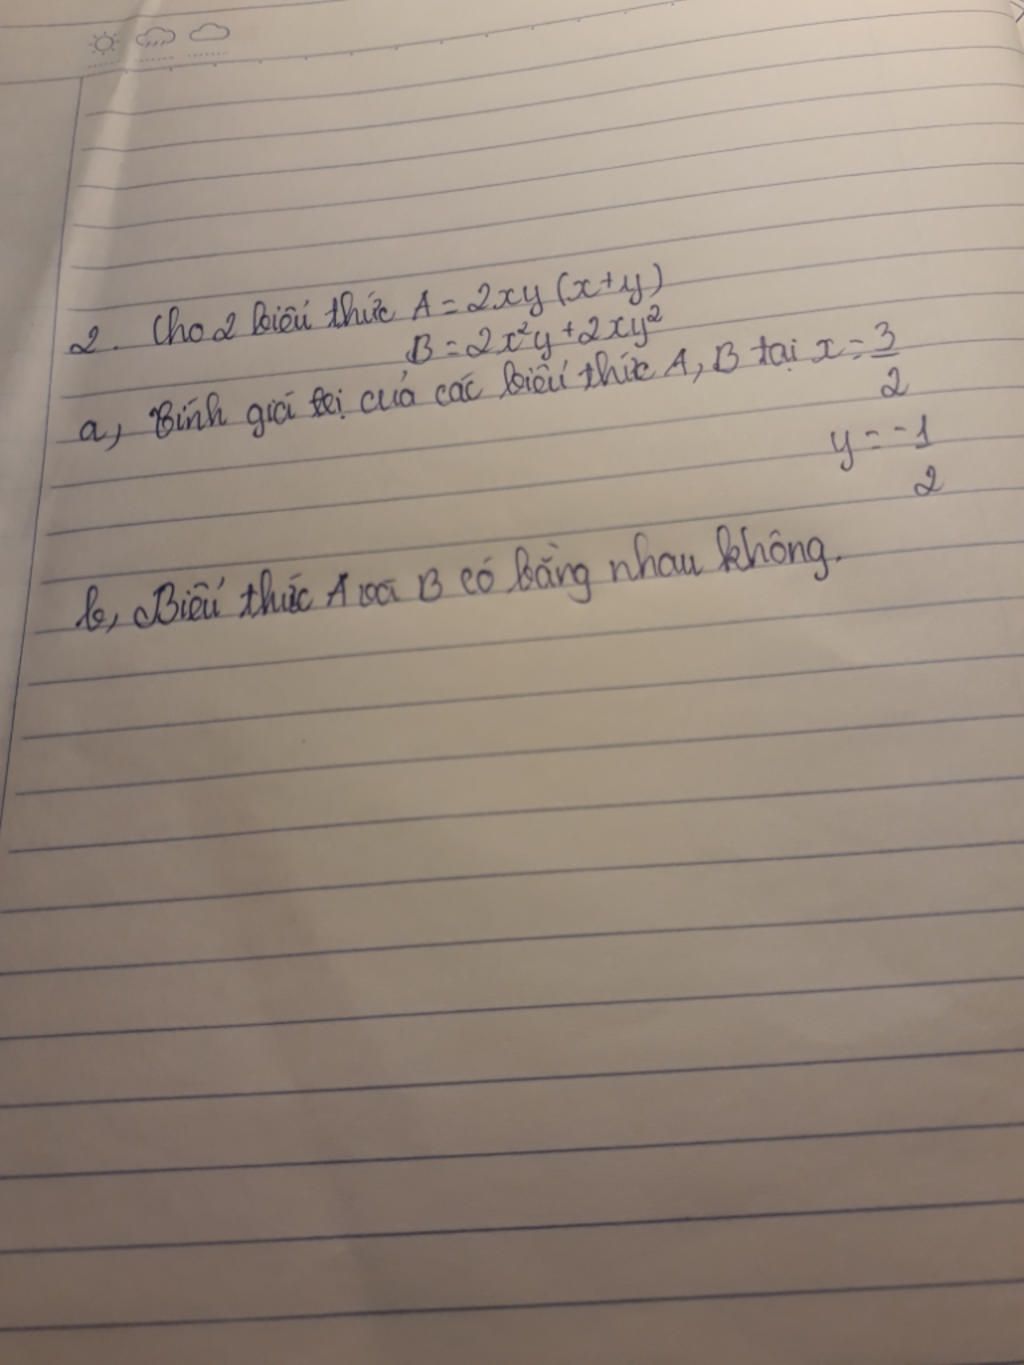 2. Cho 2 biểu thức A = 2xy (x+y)
B = 2x²y + 2xy²
a, Tính giá trị của các biểu thức A, B tại x = 3/2
y = -1/2
b, Biểu thức A và B có bằng nhau không.